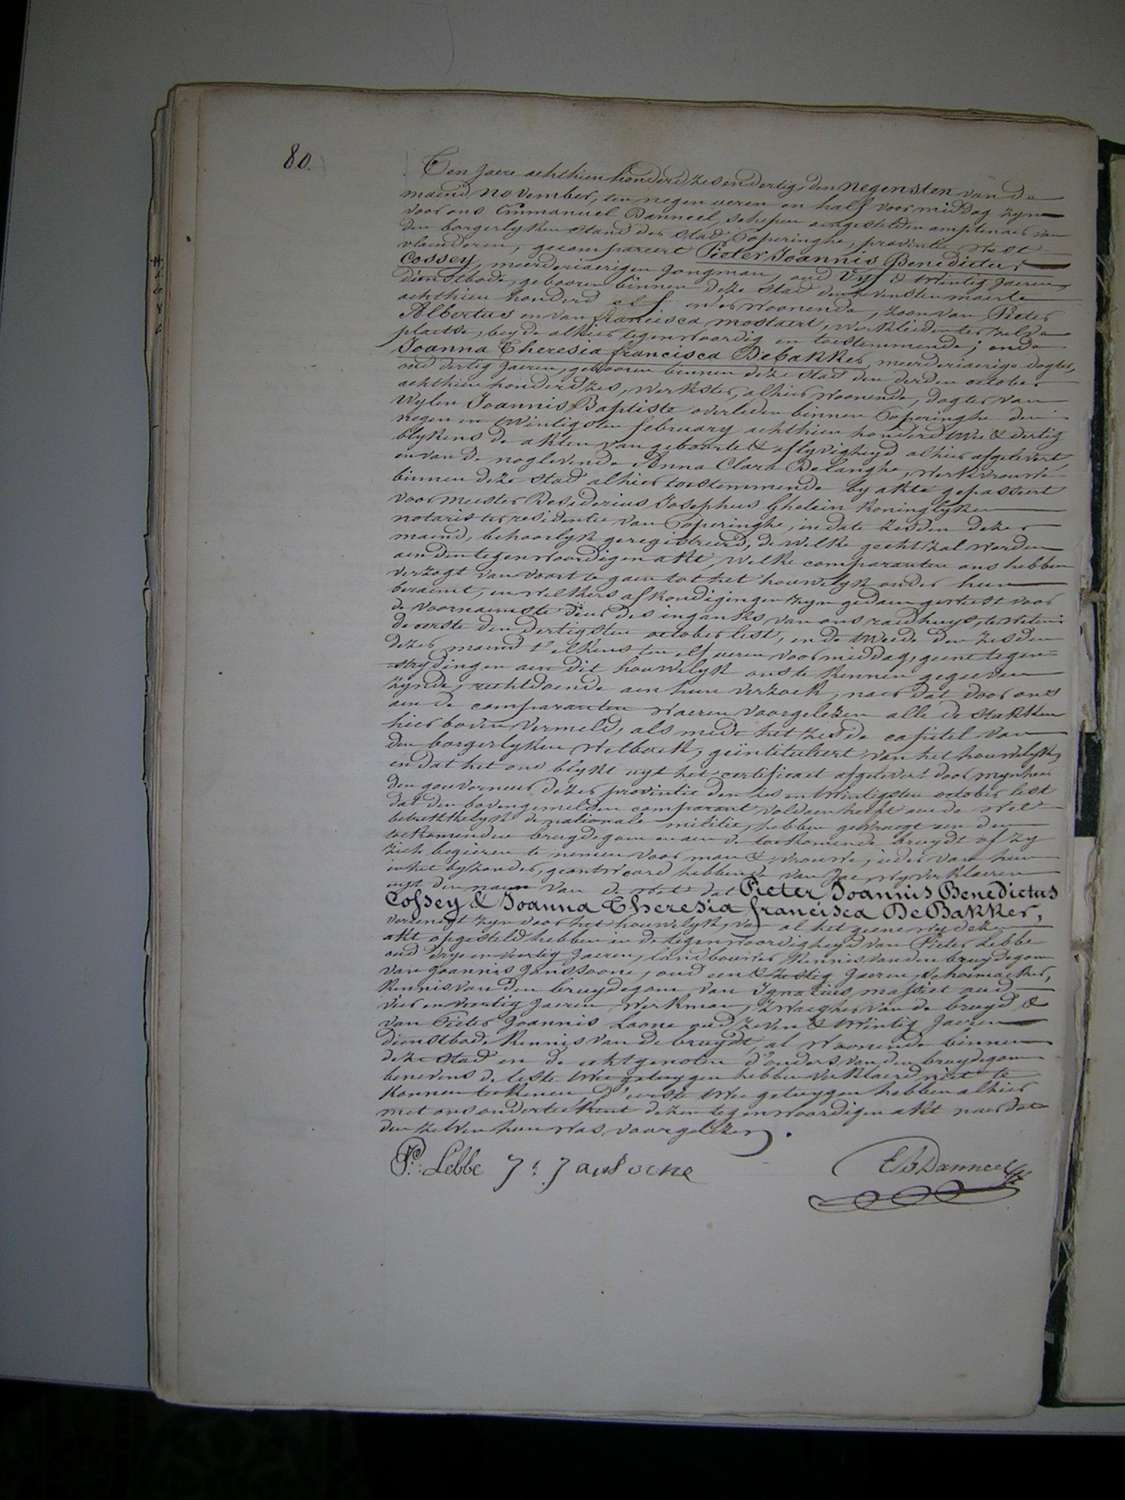 80.
Ten jaere achthien honderd zes en dertig, den negensten van de
maend november, ten negen ueren en half voor middag zyn
voor ons Emmanuel Danneel, schepen aengestelden amptenaer van
den borgerlyken stand der Stad Poperinghe, provintie West
vlaenderen, gecompareert Pieter Joannis Benedictus
Cossey, meerderjaerigen jongman, oud vyf & twintig jaeren
dienstbode, gebooren binnen deze Stad den maerte
achthien honderd elf en er woonende, zoon van Pieter
Albertus en van francisca mostaert, werklieden ter zelve
plaetse, beyde alhier tegenwoordig en toestemmende; ende
Joanna Theresia francisca DeBakker, meerderjaerige dogter,
oud dertig jaeren, gebooren binnen deze Stad den derden october
achthien honderd zes, werkster, alhier woonende, dogter van
wylen Joannis Baptiste overleden binnen Poperinghe den
negen en twintigsten february achthien honderd twee & dertig
blykens de akten van geboorte & aflyvigheyd alhier afgelevert
en van de noglevende Anna Clara Delanghe, werkvrouwe
binnen deze stad alhier toestemmende by akte gepasseert
voor meester Desiderius Josephus Ghelein koninglyken
notaris ter residentie van Poperinghe, in date zesden dezer
maend, behoorlyk geregistreerd, de welke gehecht zal worden
aen den tegenwoordigen akt, welke comparanten ons hebben
verzogt van voort te gaen tot het houwelyk onder hun
beraemt, en welkers afkondigingen zyn gedaen geweest voor
de voornaemste deur des ingangs van ons raedhuys, te weten:
de eerste den dertigsten october lest, en de tweede den zesden
dezer maend t'elkens ten elf ueren voormiddag, geene tegen-
strydingen aen dit houwelyk ons te kennen gegeven
zynde, rechtdoende aen hun verzoek, naer dat door ons
aen de comparanten waeren voorgelezen alle de stukken
hier boven vermeld, als mede het zesde capitel van
den borgerlyken wetboek, geïntituleert van het houwelyk,
en dat het ons blykt uyt het certificaet afgelevert door mynheer
den gouverneur dezer provintie den zes en twintigsten october lest
dat den bovengemelden comparant voldaen heeft aen de wet
betrekkelyk de nationale militie, hebben gevraegt aen den
toekomenden bruydegom en aen de toekomende bruydt of zy
zich begeeren te nemen voor man & vrouwe, ieder van hun
in het byzonder, geantwoord hebbende van Jae, wy verklaeren
uyt den naem van de wet dat Pieter Joannis Benedictus
Cossey & Joanna Theresia francisca DeBakker,
vereenigt zyn voor het houwelyk, van al het geene wy dezen
akt opgesteld hebben in de tegenwoordigheyd van Pieter Lebbe
oud drye en veertig jaeren, landbouwer, kennis van den bruydegom
van Joannis Janssoone, oud een & zestig jaeren, schoenmaeker,
kennis van den bruydegom van Ignatius massiet oud
vier en veertig jaeren werkman, zwaegher van de bruyd &
van Pieter Joannis Loone oud zeven & twintig jaeren
dienstbode kennis van de bruydt, al woonende binnen
deze stad en de echtgenoten d'ouders van den bruydegom
benevens de leste twee getuygen hebben verklaerd niet te
konnen teekenen d'eerste twee getuygen hebben alhier
met ons onderteekent dezen tegenwoordigen akt naer dat
den zelven hun was voorgelezen.
P: Lebbe J: Jansoone E Danneel